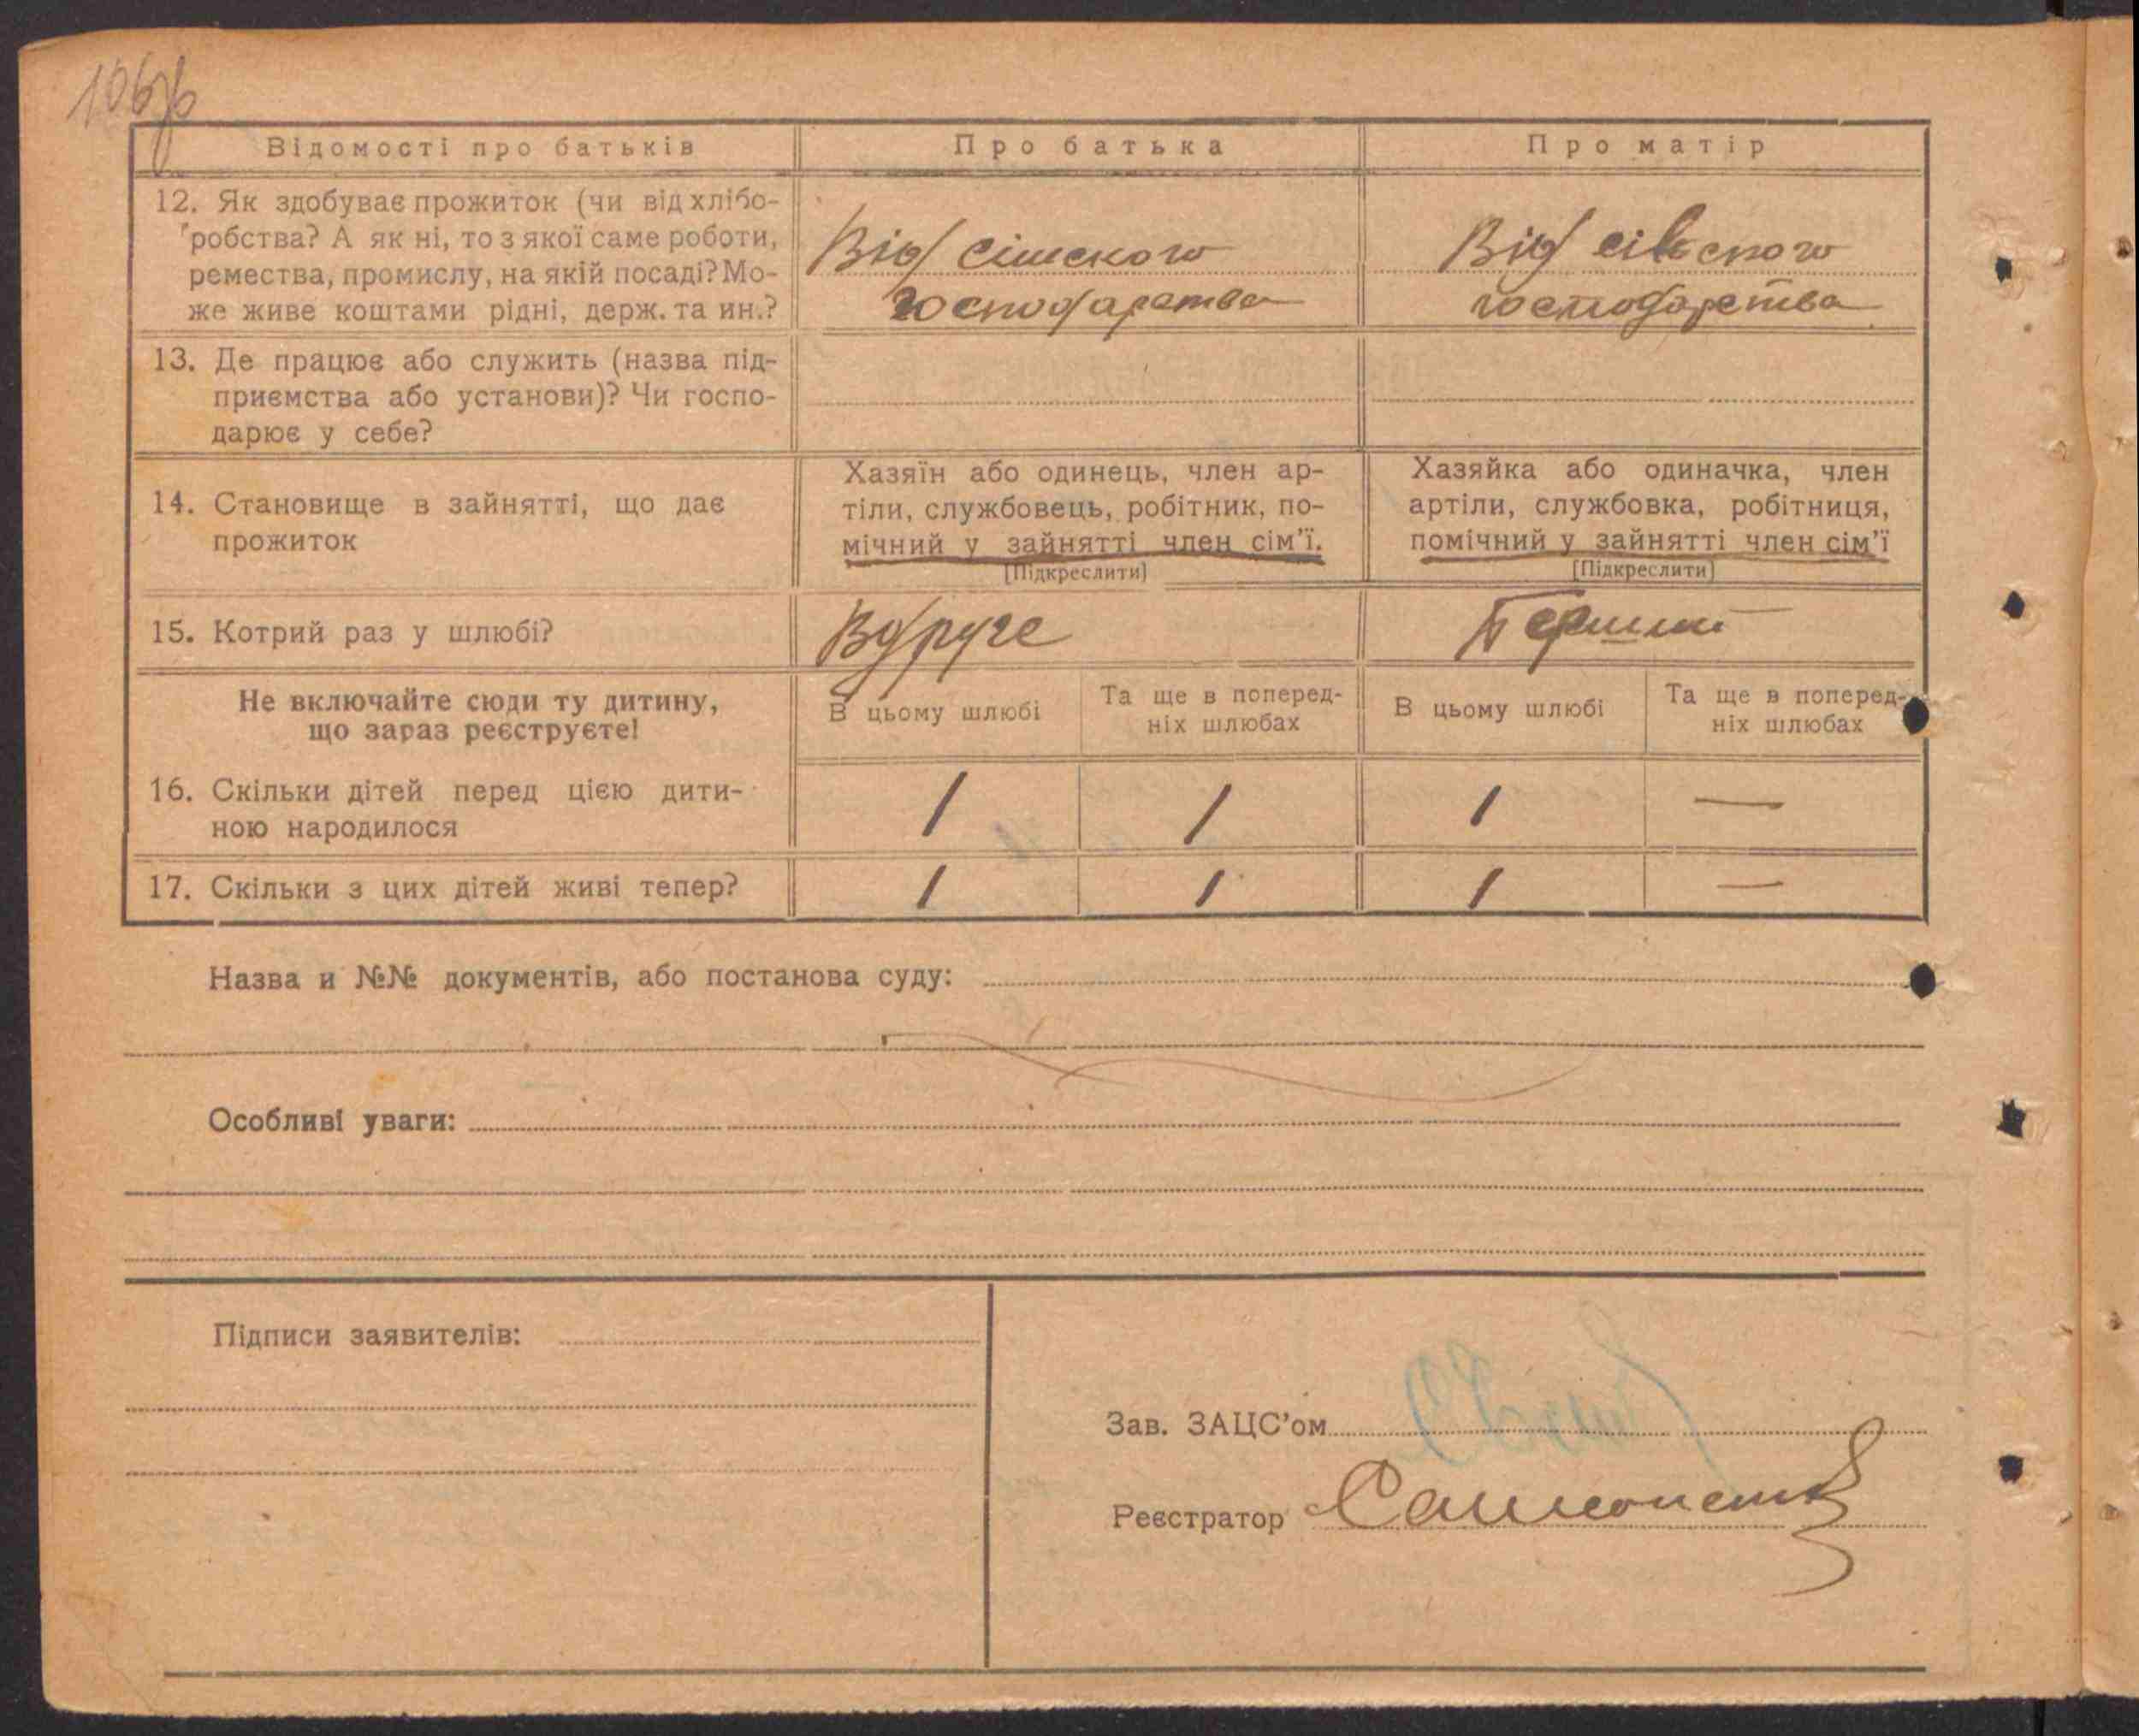 Відомості про батьків
Про батька
Про матір
12. Як здобуває прожиток (чи від хлібо-
робства? А як ні, то з якої саме роботи,
ремества, промислу, на якій посаді? Мо-
же живе коштами рідні, держ. та ин.?
Від сільского
господарства
Від сільского
господарства
13. Де працює або служить (назва під-
приємства або установи)? Чи госпо-
дарює у себе?
14. Становище в зайнятті, що дає
прожиток
Хазяїн або одинець, член ар-
тіли, службовець, робітник, по-
мічний у зайнятті член сім'ї.
[Підкреслити]
Хазяйка або одиначка, член
артіли, службовка, робітниця,
помічний у зайнятті член сім'ї
[Підкреслити]
15. Котрий раз у шлюбі?
Вдруге
Перший
Не включайте сюди ту дитину,
що зараз реєструєте!
В цьому шлюбі
Та ще в поперед-
ніх шлюбах
В цьому шлюбі
Та ще в поперед-
ніх шлюбах
16. Скільки дітей перед цією дити-
ною народилося
1 1 1 —
17. Скільки з цих дітей живі тепер?
1 1 1 —
Назва и №№ документів, або постанова суду:
Особливі уваги:
Підписи заявителів:
Зав. ЗАЦС'ом
Реєстратор